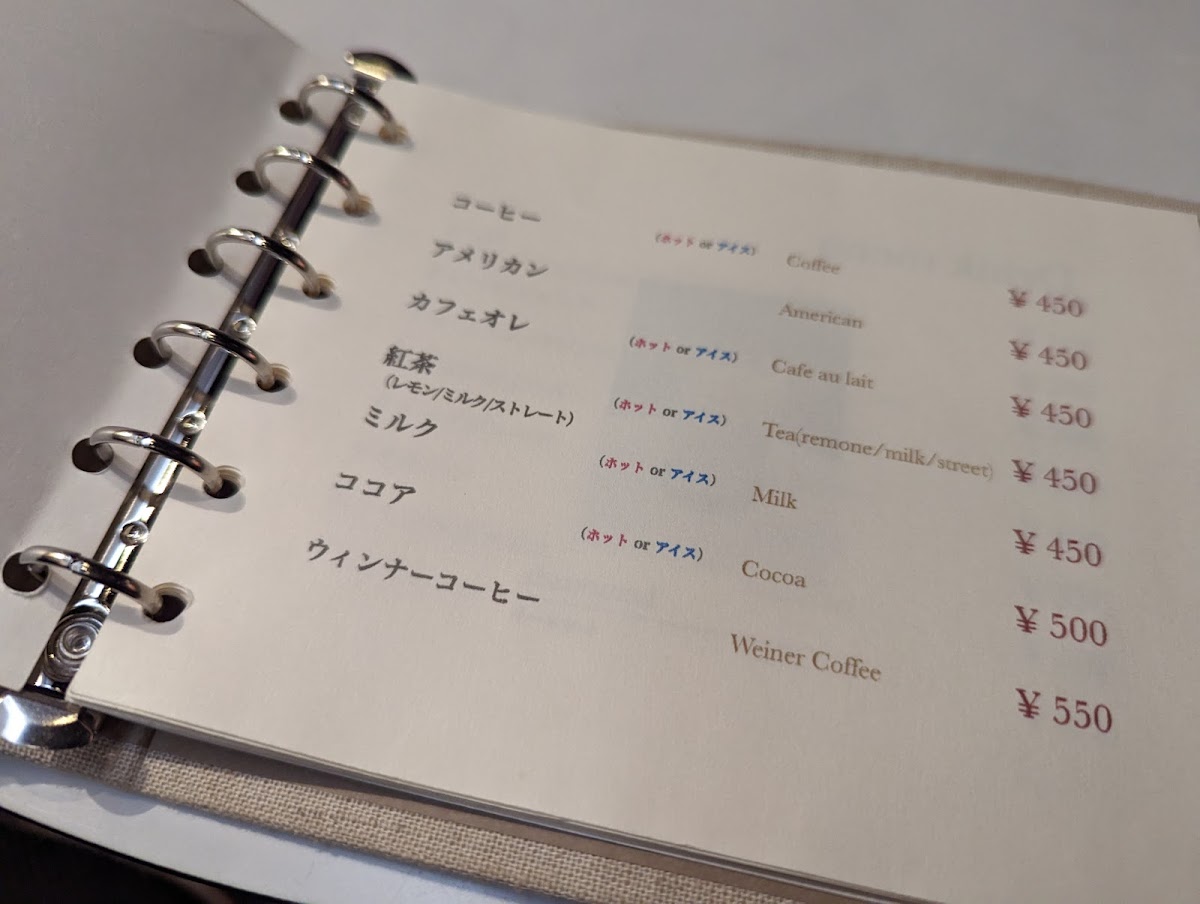 コーヒー (ホット or アイス) Coffee ¥ 450
アメリカン American ¥ 450
カフェオレ (ホット or アイス) Cafe au lait ¥ 450
紅茶 (ホット or アイス) Tea(remone/milk/street) ¥ 450
(レモン/ミルク/ストレート)
ミルク (ホット or アイス) Milk ¥ 450
ココア (ホット or アイス) Cocoa ¥ 500
ウィンナーコーヒー Weiner Coffee ¥ 550